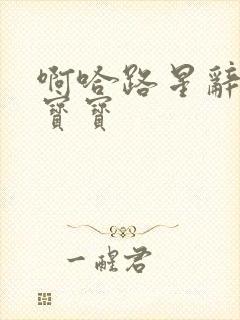 啊哈路星辭
寶寶
一醒君